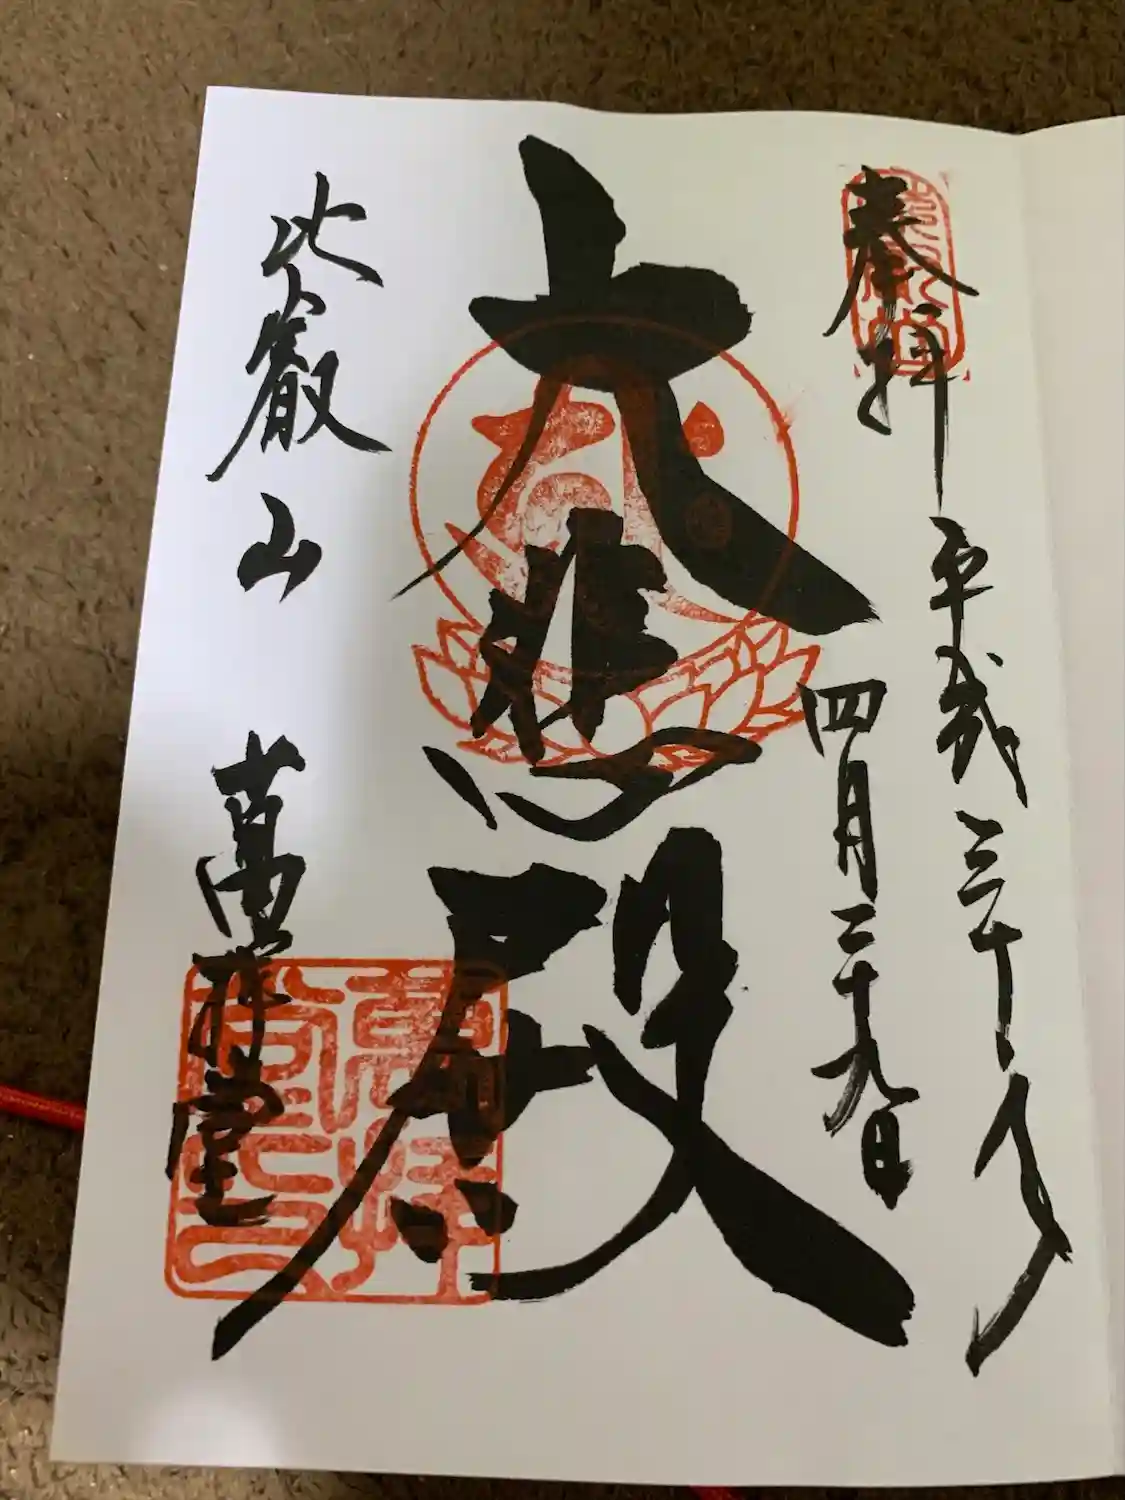 奉拝
平成三十年
四月二十九日
大悲殿
比叡山
萬拝堂
萬拝堂印